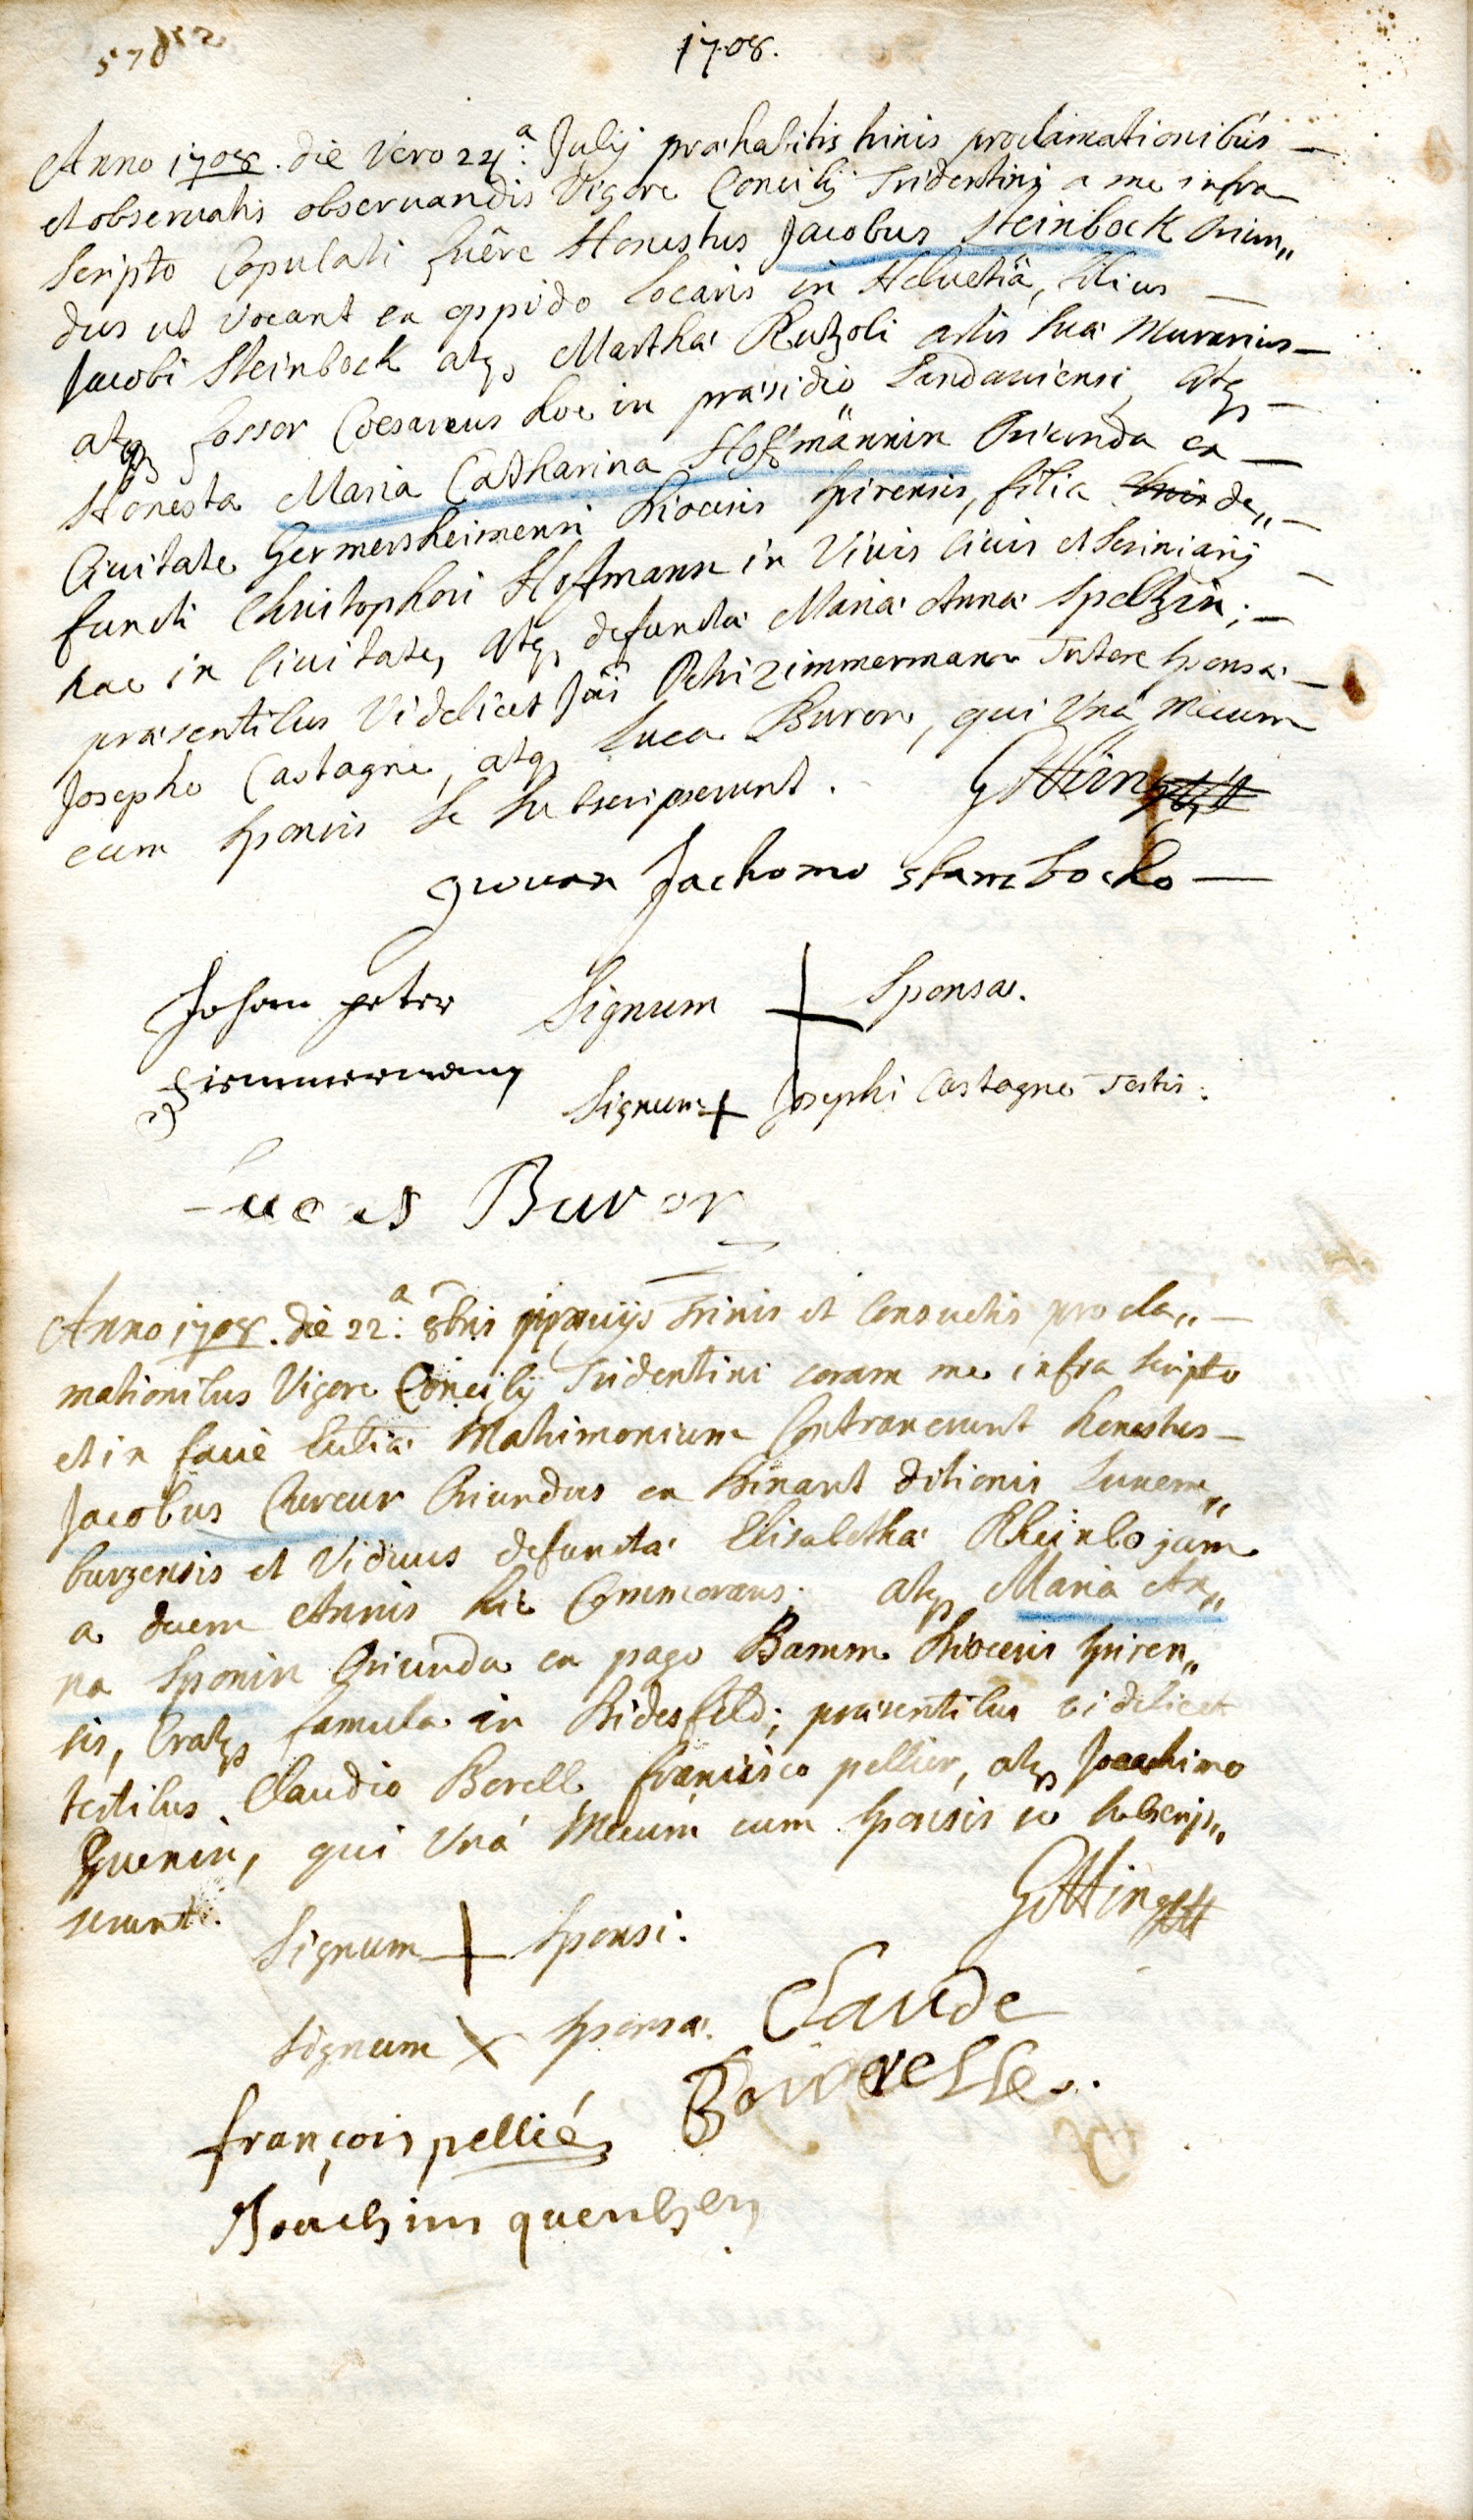 1708.
Anno 1708. die vero 24.a Julij præhabitis trinis proclamationibus
et observatis observandis Vigore Concilij Tridentini a me infra
scripto Copulati fuêre Honestus Jacobus Steinbock Oriun„
dus ut vocant ex oppido Locaris in Helvetiâ, filius
Jacobi Steinbock atq Marthæ Rutzoli artis suæ Murarius
atq fossor Cæsareus hoc in præsidio Landaviensi, atq
Honesta Maria Catharina Hoffmännin Oriunda ex
Civitate Germersheimensi Diocæsis Spirensis, filia de„
functi Christophori Hoffmann in Vivis Civis et Scriniarij
hac in Civitate, atq defunctæ Mariæ Annæ Speltzin;
præsentibus Videlicet Joi Petri Zimmermann Tutore Sponsæ
Josepho Castagne, atq Luca Buron, qui Unâ Mecum
cum Sponsis se subscripserunt. Götting
giovan Jachomo stambocko
Johan peter Signum + Sponsæ.
Zimmermann
Signum + Josephi Castagne Testis.
Lucas Buron
Anno 1708. die 22.a 8bris præviis Trinis et Consuetis procla„
mationibus Vigore Concilij Tridentini coram me infra scripto
et in facie Ecclīæ Matrimonium Contraxerunt honestus
Jacobus Cureur Oriundus ex Dinant ditionis Luxem„
burgensis et Viduus defunctæ Elisabethæ Rheinlo jam
a decem Annis hic Commorans; atq Maria An„
na Sponin Oriunda ex pago Bamm Diocesis Spiren„
sis, famula in Didesfeld; præsentibus videlicet
testibus Claudio Borell, francisco pellier, atq Joachimo
Guenin, qui Unâ Mecum cum Sponsis se subscrip„
serunt. Götting
Signum + Sponsi.
Signum X Sponsæ. Claude
Bourelle
françois pellié
Joachim quenhen